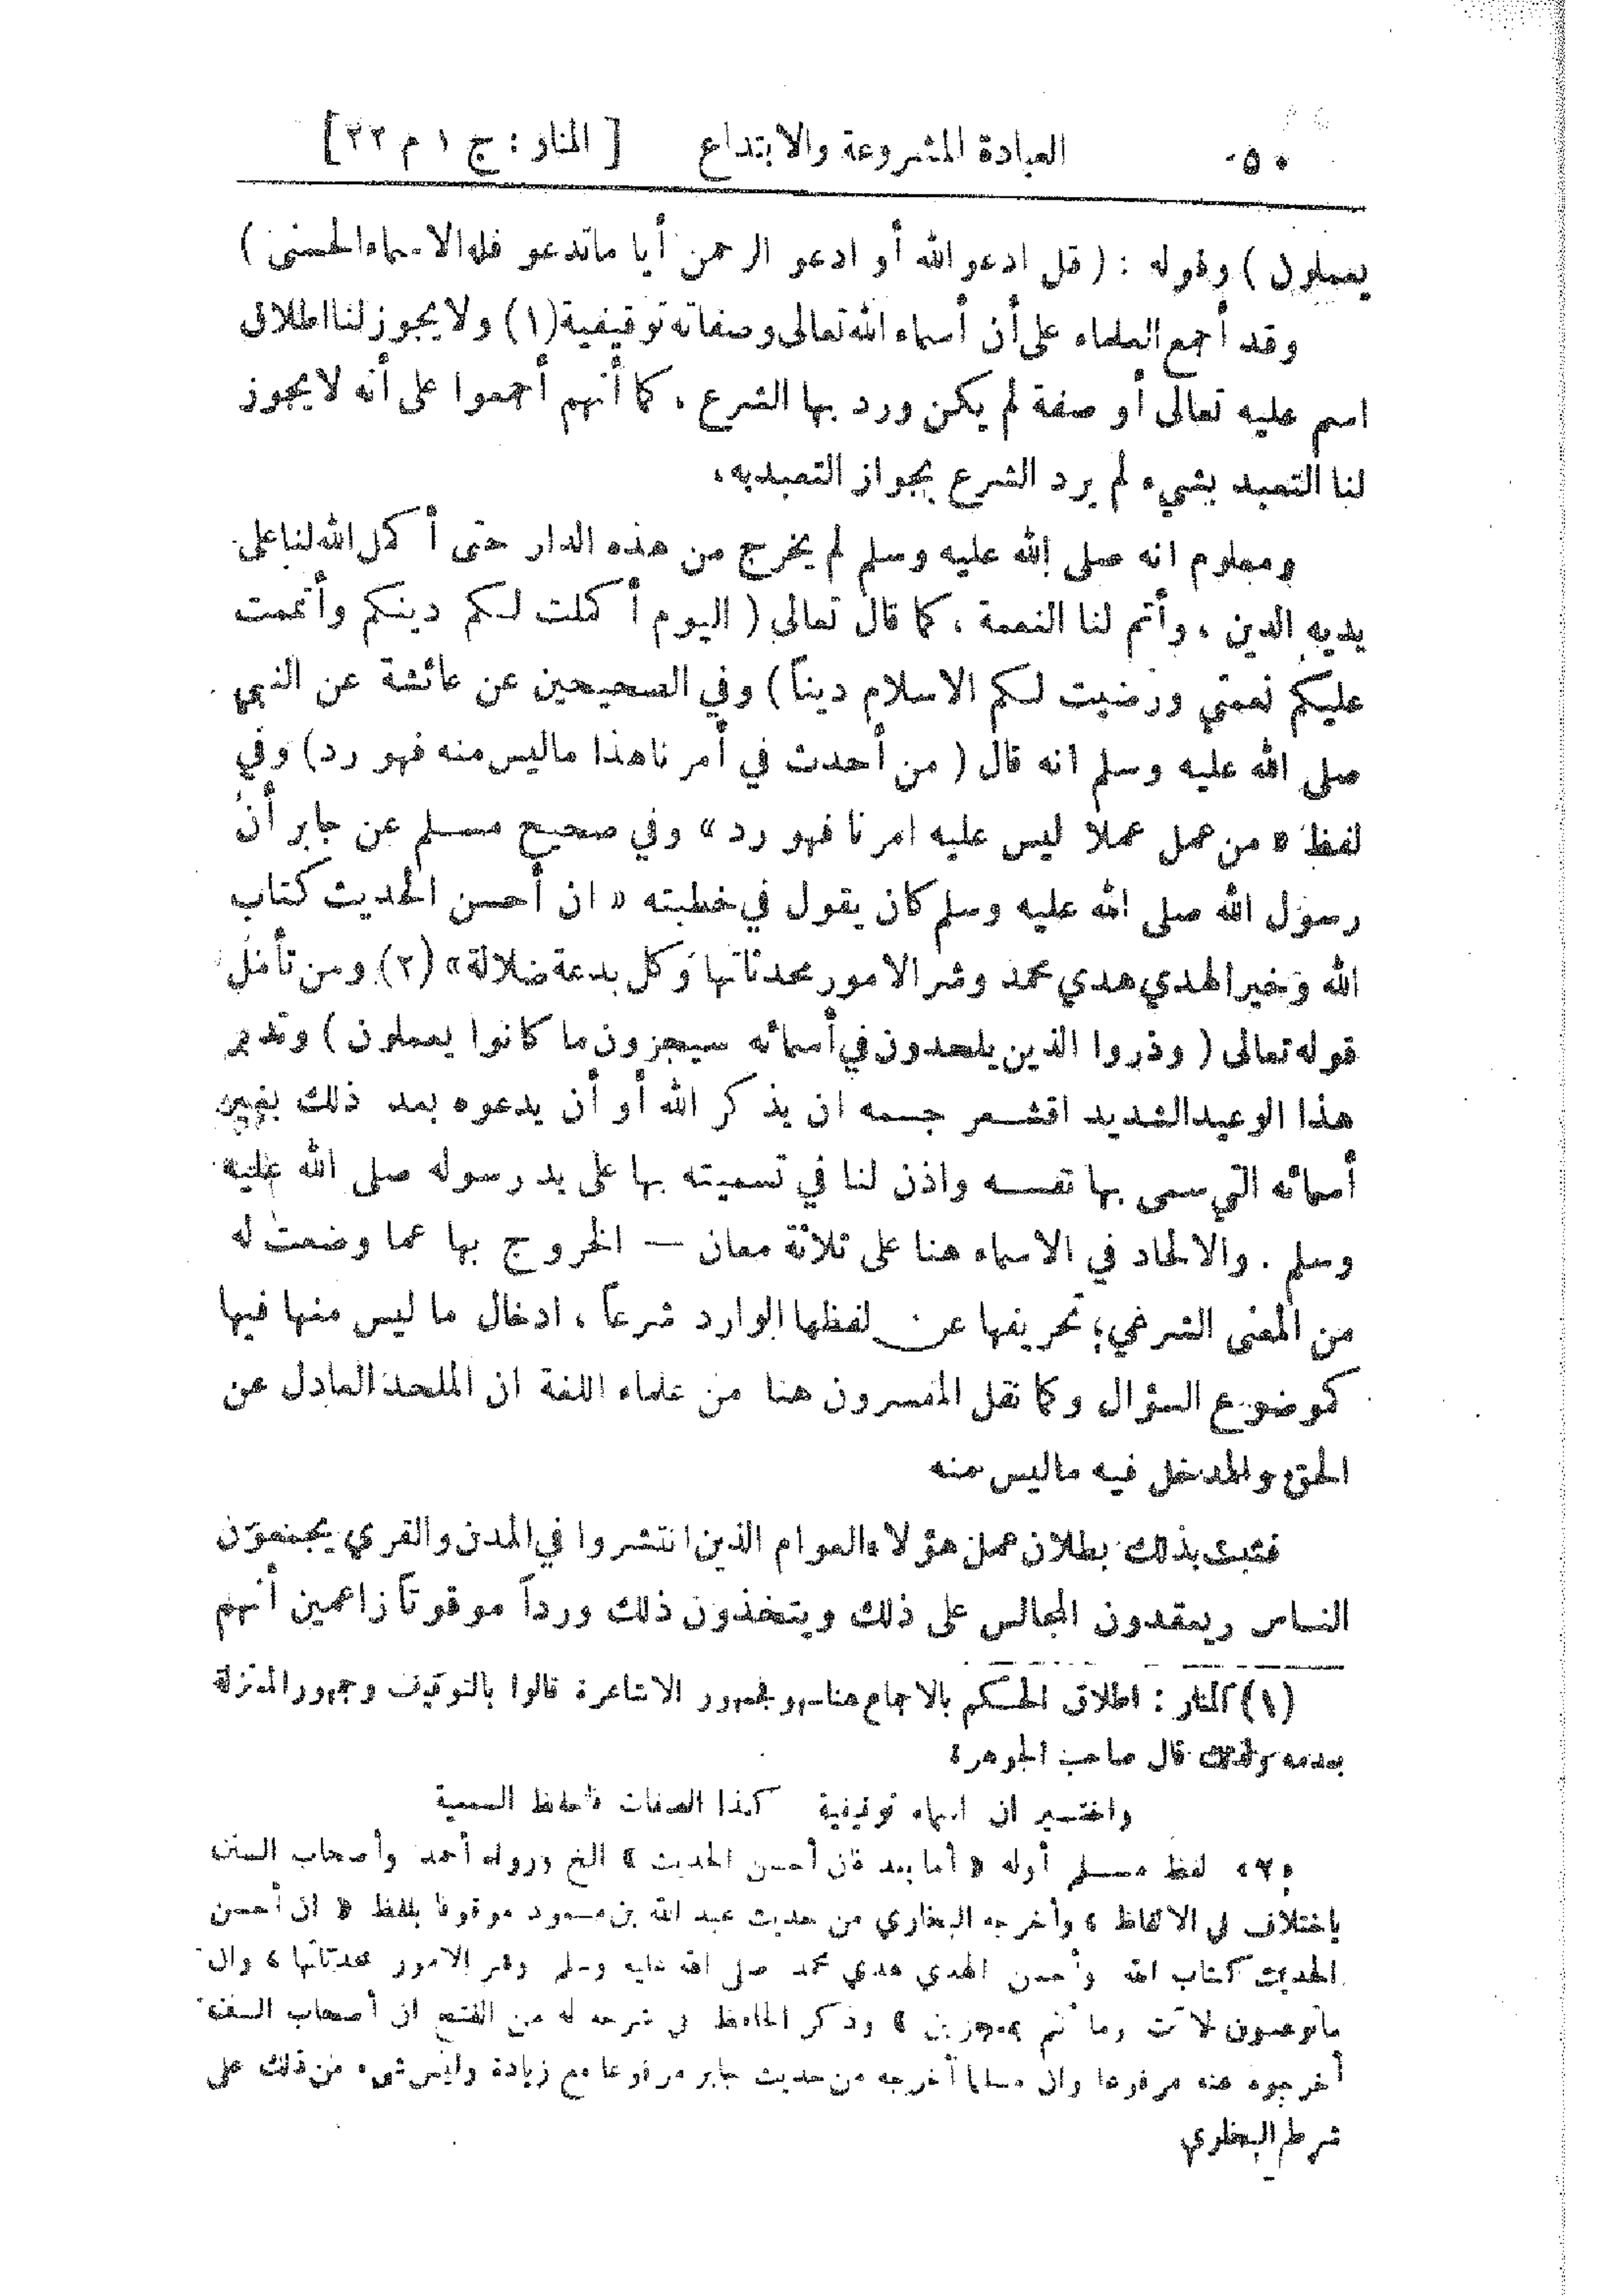 ٥٠ العبادة المشروعة والابتداع [ المنار : ج ١ م ٢٢ ]
يعملون ) وقوله : ( قل ادعو الله أو ادعو الرحمن أيا ماتدعو فله الاسماء الحسنى )
وقد أجمع العلماء على أن أسماء الله تعالى وصفاته توقيفية (١) ولا يجوز لنا اطلاق
اسم عليه تعالى أو صفة لم يكن ورد بها الشرع ، كما أنهم أجمعوا على أنه لا يجوز
لنا التعبد بشيء لم يرد الشرع بجواز التعبد به ،
ومعلوم انه صلى الله عليه وسلم لم يخرج من هذه الدار حتى أكمل الله لنا على
يديه الدين ، وأتم لنا النعمة ، كما قال تعالى ( اليوم أكملت لكم دينكم وأتممت
عليكم نعمتي ورضيت لكم الاسلام ديناً ) وفي الصحيحين عن عائشة عن النبي
صلى الله عليه وسلم انه قال ( من أحدث في أمرنا هذا ماليس منه فهو رد ) وفي
لفظ « من عمل عملا ليس عليه امرنا فهو رد » وفي صحيح مسلم عن جابر أن
رسول الله صلى الله عليه وسلم كان يقول في خطبته « ان أحسن الحديث كتاب
الله وخير الهدي هدي محمد وشر الامور محدثاتها وكل بدعة ضلالة » (٢) ومن تأمل
قوله تعالى ( وذروا الذين يلحدون في أسمائه سيجزون ما كانوا يعملون ) وتدبر
هذا الوعيد الشديد اقشعر جسمه ان يذكر الله أو أن يدعوه بعد ذلك بغير
أسمائه التي سمى بها نفسه واذن لنا في تسميته بها على يد رسوله صلى الله عليه
وسلم . والالحاد في الاسماء هنا على ثلاثة معان — الخروج بها عما وضعت له
من المعنى الشرعي ؛ تحريفها عن لفظها الوارد شرعاً ، ادخال ما ليس منها فيها
كموضوع السؤال وكما نقل المفسرون هنا من علماء اللغة ان الملحد العادل عن
الحق والمدخل فيه ماليس منه
فثبت بذلك بطلان عمل هؤلاء العوام الذين انتشروا في المدن والقري يجمعون
الناس ويعقدون المجالس على ذلك ويتخذون ذلك ورداً موقوتاً زاعمين أنهم
(١) المنار : اطلاق الحكم بالاجماع هنا سهو فجمهور الاشاعرة قالوا بالتوقيف وجمهور المعتزلة
بعدمه ولذلك قال صاحب الجوهرة
واختير ان اسماه توقيفية كذا الصفات فاحفظ السمعية
«٢» لفظ مسلم أوله « أما بعد فان أحسن الحديث » الخ ورواه أحمد وأصحاب السنن
باختلاف في الالفاظ ، وأخرجه البخاري من حديث عبد الله بن مسعود موقوفا بلفظ « ان أحسن
الحديث كتاب الله وأحسن الهدي هدي محمد صلى الله عليه وسلم وشر الامور محدثاتها ، وان
ماتوعدون لآت وما أنتم بمعجزين » وذكر الحافظ في شرحه له من الفتح ان أصحاب السنن
أخرجوه عنه مرفوعا وان مسلما أخرجه من حديث جابر مرفوعا مع زيادة وليس شيء من ذلك على
شرط البخاري